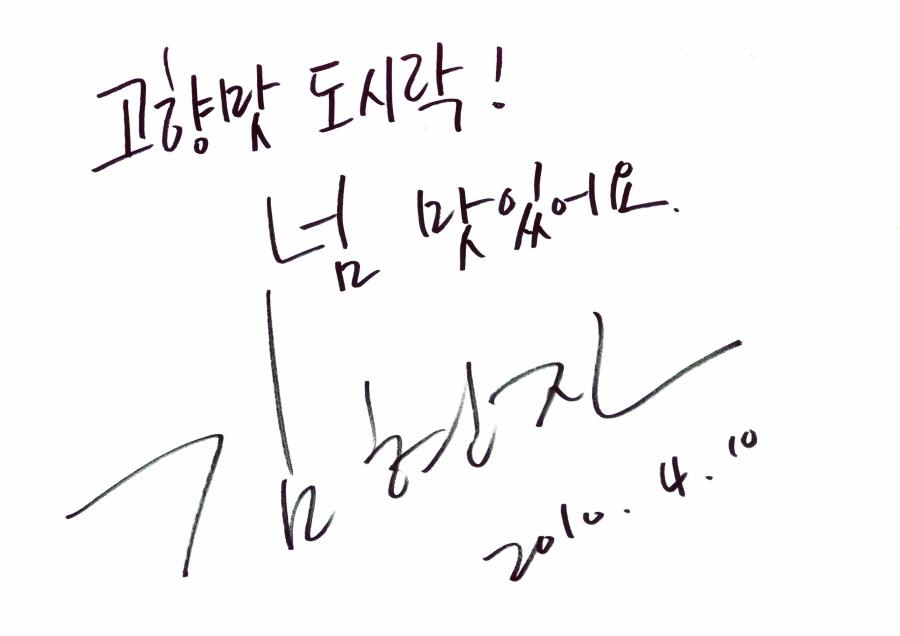 고향맛 도시락!
넘 맛있어요.
김형자
2010. 4. 10